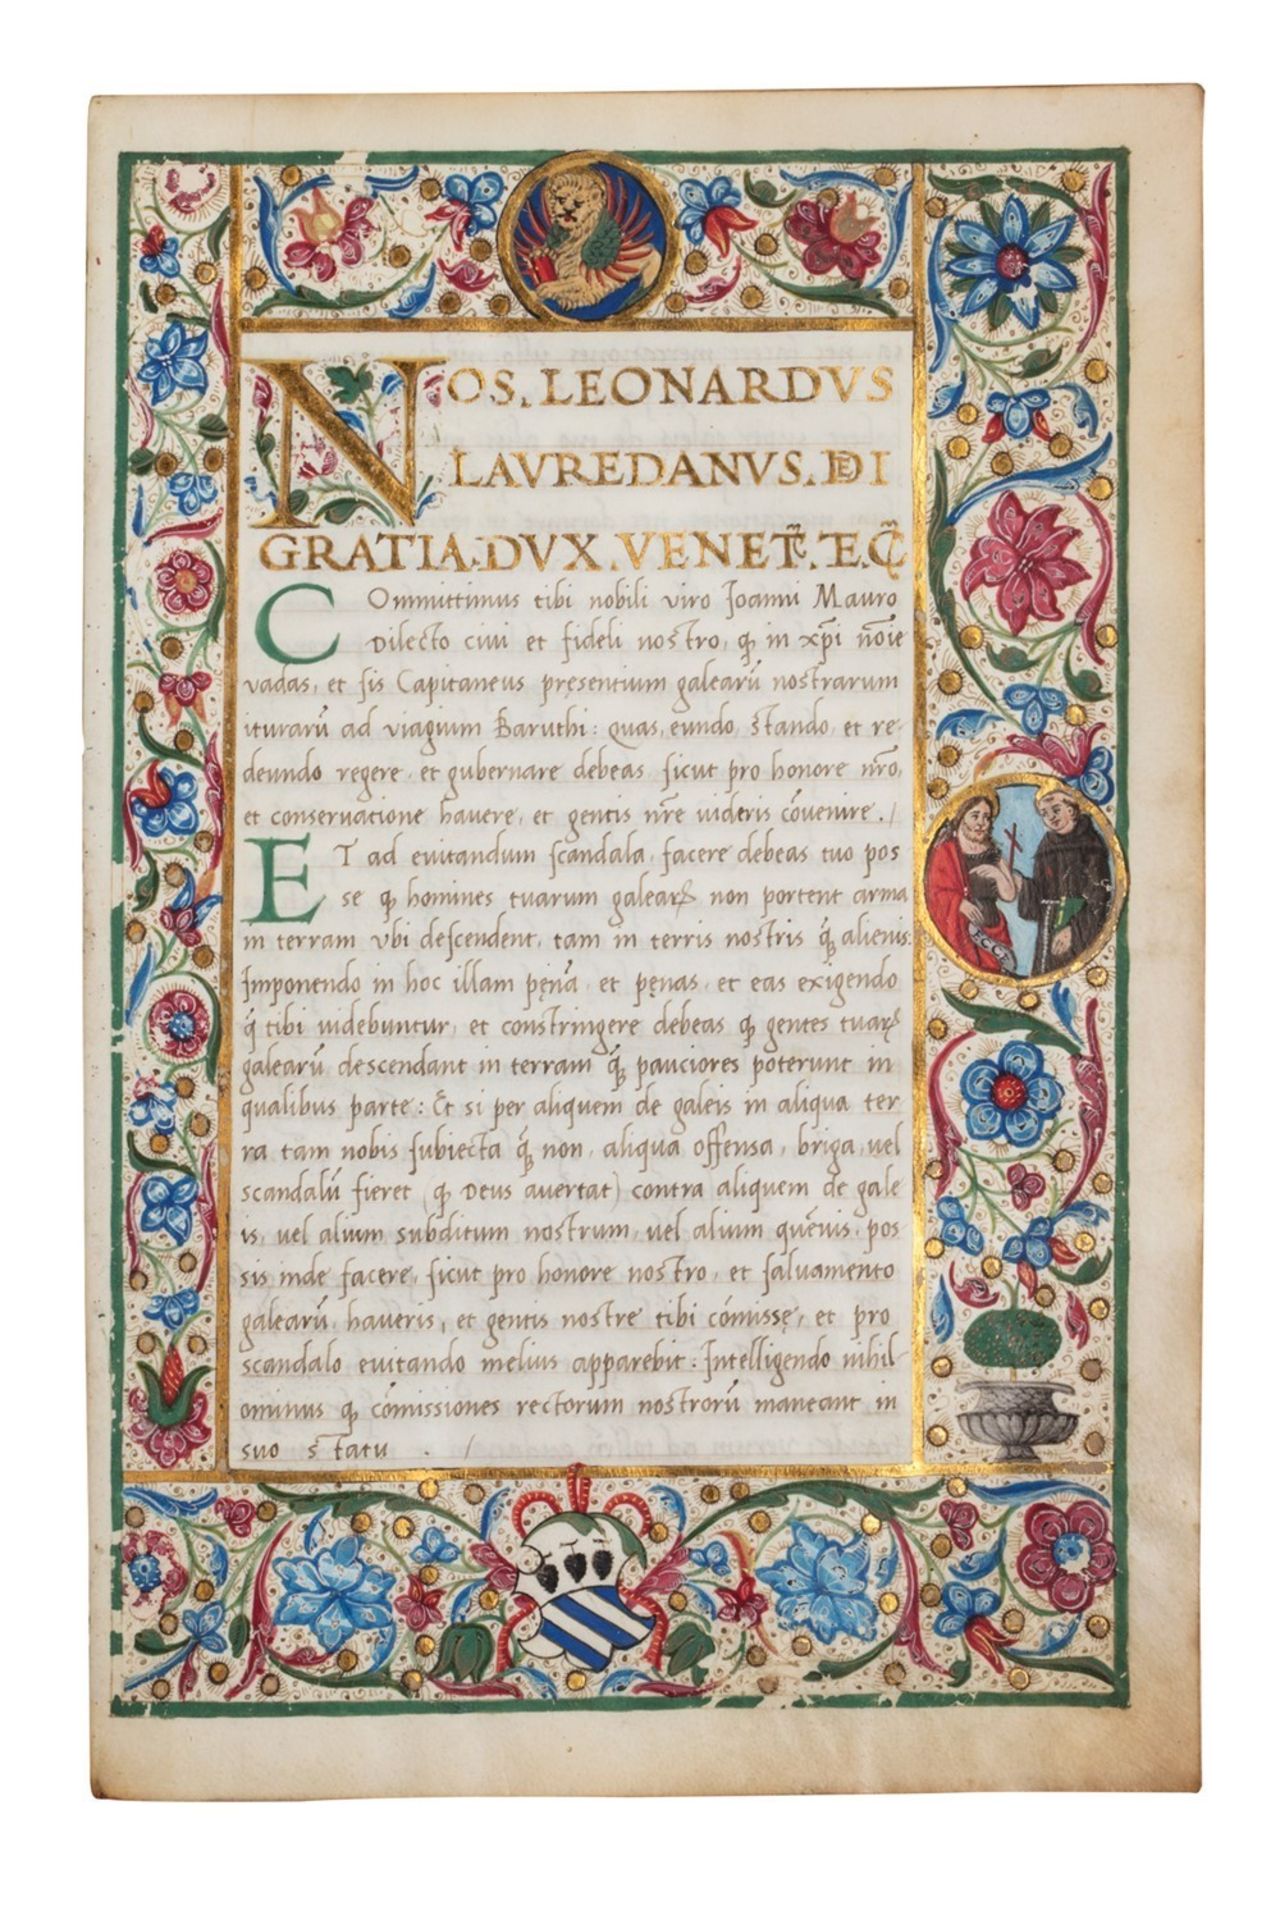 NOS. LEONARDVS
LAVREDANVS. DEI
GRATIA. DVX. VENET̃. E.C̃
COmmittimus tibi nobili viro Joanni Mauro
Dilecto ciui et fideli nostro, ꝙ in xp̄i nōie
vadas, et sis Capitaneus pręsentium galearū nostrarum
iturarū ad viagium Baruthi: quas, eundo, stando, et re-
deundo regere, et gubernare debeas sicut pro honore nr̄o,
et conseruatione hauere, et gentis nr̄e uideris cōuenire. /
ET ad euitandum scandala, facere debeas tuo pos
se ꝙ homines tuarum galearꝝ non portent arma
in terram vbi descendent, tam in terris nostris q̄ꝫ alienis:
Imponendo in hoc illam pęnā, et pęnas, et eas exigendo
q̄ tibi uidebuntur, et constringere debeas ꝙ gentes tuarꝝ
galearū descendant in terram q̄ꝫ pauciores poterunt in
qualibus parte: Et si per aliquem de galeis in aliqua ter
ra tam nobis subiecta q̄ꝫ non, aliqua offensa, briga, uel
scandalū fieret (ꝙ Deus auertat) contra aliquem de gale
is, uel alium subditum nostrum, uel alium quēuis, pos
sis inde facere, sicut pro honore nostro, et saluamento
galearū, haueris, et gentis nostre tibi cōmissę, et pro
scandalo euitando melius apparebit: Intelligendo nihil-
ominus ꝙ cōmissiones rectorum nostrorū maneant in
suo statu . /
ECCE